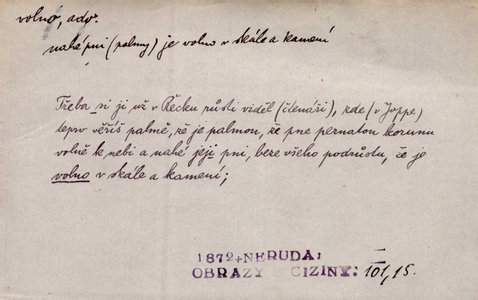 volno, adv.
nahé pni (palmy) je volno v skále a kamení
Třeba si ji už v Řecku růsti viděl (čtenáři), zde (v Joppe)
teprv věříš palmě, že je palmou, že pne pernatou korunu
volně k nebi a nahé její pni, beze všeho podrůstu, že je
volno v skále a kamení;
1872+NERUDA:
OBRAZY CIZINY: 101,15.